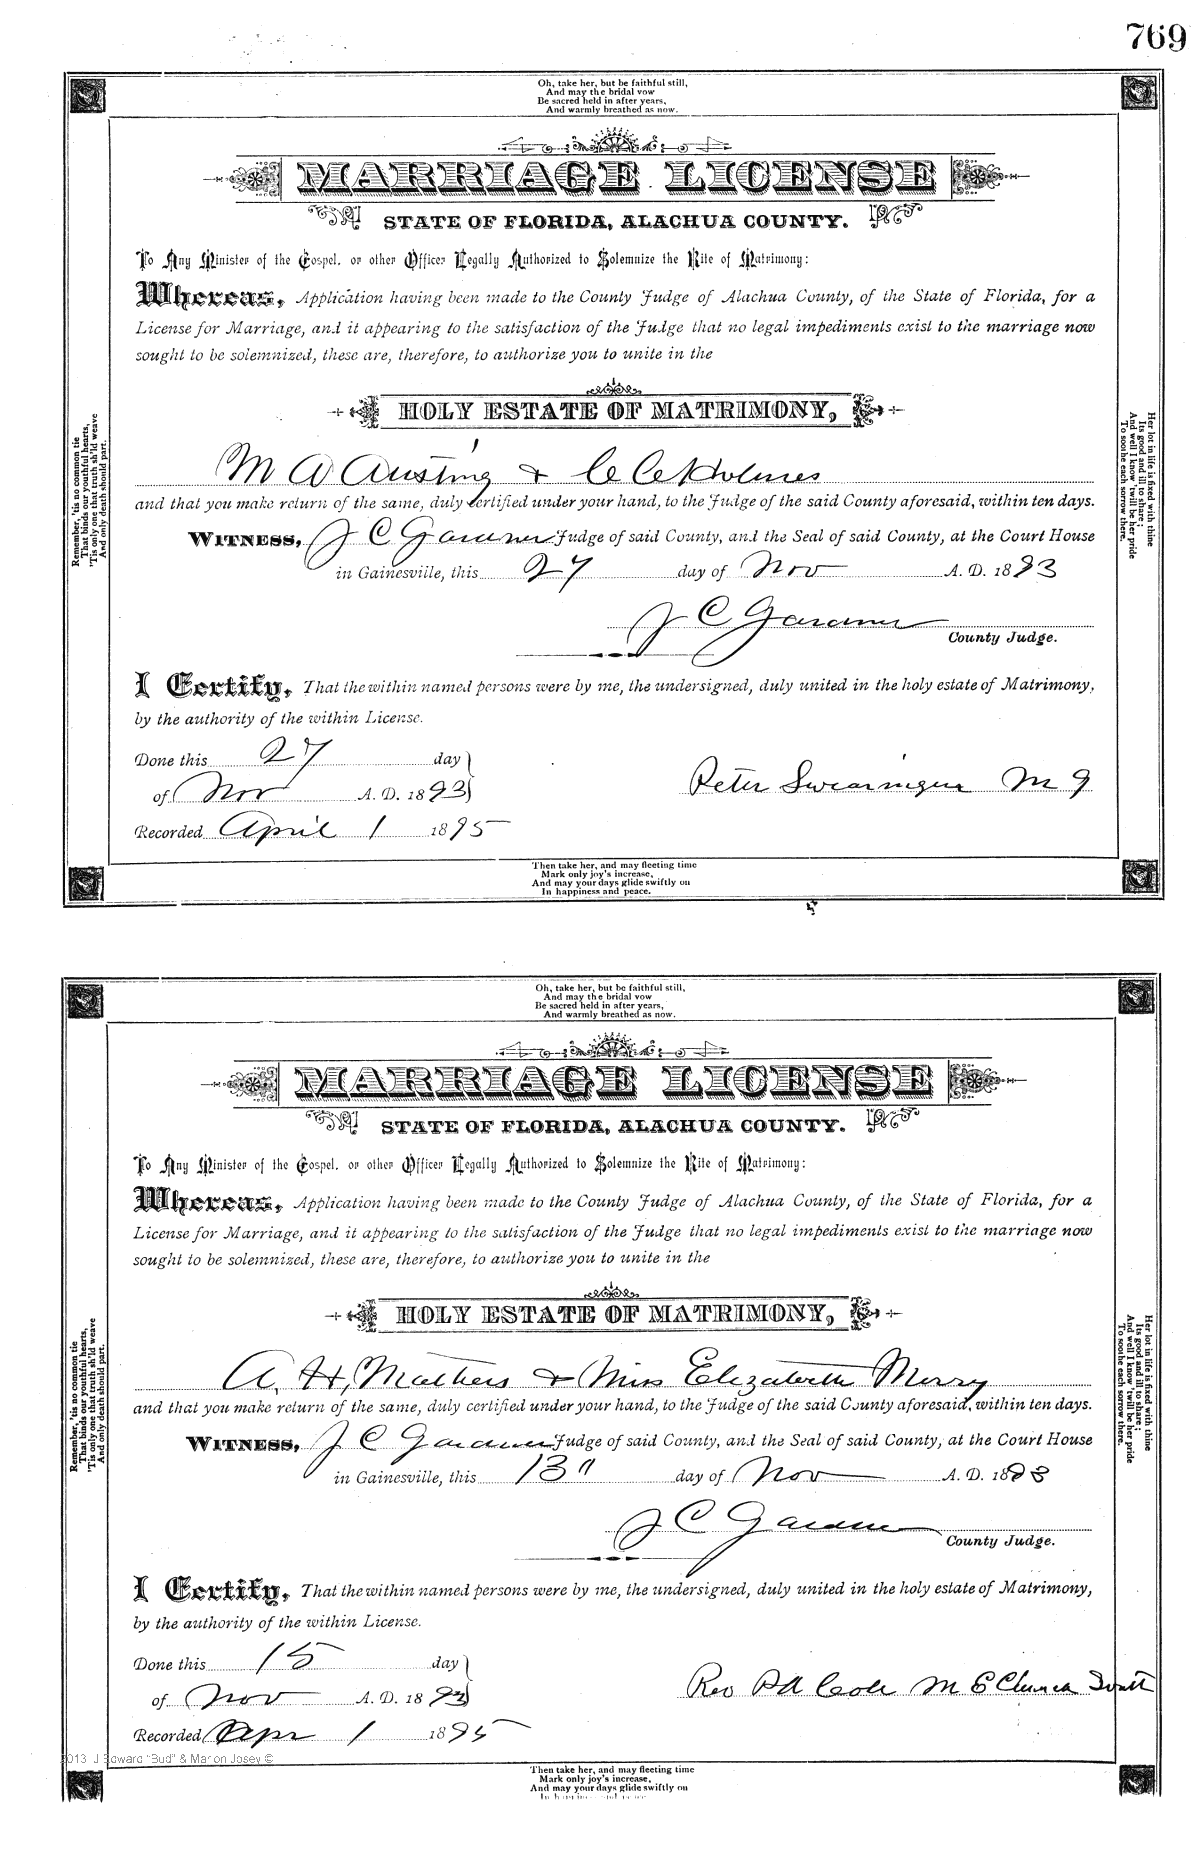 769
Oh, take her, but be faithful still,
And may the bridal vow
Be sacred held in after years,
And warmly breathed as now.
MARRIAGE LICENSE
STATE OF FLORIDA, ALACHUA COUNTY.
To Any Minister of the Gospel, or other Officer Legally Authorized to Solemnize the Rite of Matrimony:
Whereas, Application having been made to the County Judge of Alachua County, of the State of Florida, for a
License for Marriage, and it appearing to the satisfaction of the Judge that no legal impediments exist to the marriage now
sought to be solemnized, these are, therefore, to authorize you to unite in the
HOLY ESTATE OF MATRIMONY,
M A Austing & C C Holmes
and that you make return of the same, duly certified under your hand, to the Judge of the said County aforesaid, within ten days.
WITNESS, J C Gardner Judge of said County, and the Seal of said County, at the Court House
in Gainesville, this 27 day of Nov A. D. 1893
J C Gardner
County Judge.
I Certify, That the within named persons were by me, the undersigned, duly united in the holy estate of Matrimony,
by the authority of the within License.
Done this 27 day
of Nov A. D. 1893
Peter Swearingen M G
Recorded April 1 1895
Remember, 'tis no common tie
That binds our youthful hearts,
'Tis only one that truth sh'ld weave
And only death should part.
Her lot in life is fixed with thine
Its good and ill to share;
And well I know 'twill be her pride
To soothe each sorrow there.
Then take her, and may fleeting time
Mark only joy's increase,
And may your days glide swiftly on
In happiness and peace.
Oh, take her, but be faithful still,
And may the bridal vow
Be sacred held in after years,
And warmly breathed as now.
MARRIAGE LICENSE
STATE OF FLORIDA, ALACHUA COUNTY.
To Any Minister of the Gospel, or other Officer Legally Authorized to Solemnize the Rite of Matrimony:
Whereas, Application having been made to the County Judge of Alachua County, of the State of Florida, for a
License for Marriage, and it appearing to the satisfaction of the Judge that no legal impediments exist to the marriage now
sought to be solemnized, these are, therefore, to authorize you to unite in the
HOLY ESTATE OF MATRIMONY,
A. H. Mathers & Miss Elizabeth Merry
and that you make return of the same, duly certified under your hand, to the Judge of the said County aforesaid, within ten days.
WITNESS, J C Gardner Judge of said County, and the Seal of said County, at the Court House
in Gainesville, this 13" day of Nov A. D. 1893
J C Gardner
County Judge.
I Certify, That the within named persons were by me, the undersigned, duly united in the holy estate of Matrimony,
by the authority of the within License.
Done this 15 day
of Nov A. D. 1893
Rev P A Cole M E Church
Recorded Apr 1 1895
Remember, 'tis no common tie
That binds our youthful hearts,
'Tis only one that truth sh'ld weave
And only death should part.
Her lot in life is fixed with thine
Its good and ill to share;
And well I know 'twill be her pride
To soothe each sorrow there.
2013 J Edward "Bud" & Marion Josey ©
Then take her, and may fleeting time
Mark only joy's increase,
And may your days glide swiftly on
In happiness and peace